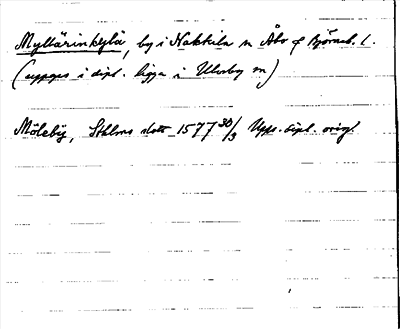 Myllärinkylä, by i Nakkila sn Åbo o Björneb. l.
(uppges i dipl. ligga i Ulvsby sn)
Möleby, Sthlms slott 1577 30/3 Upps. dipl. orig.